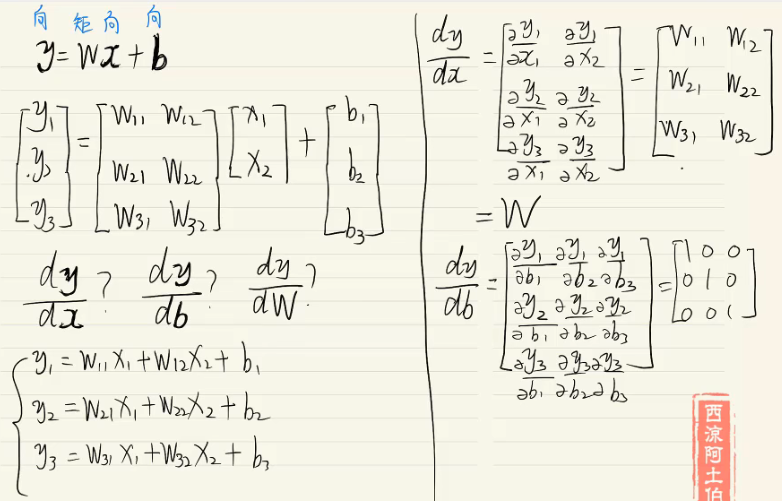 向 矩 向 向
y = Wx + b
[y₁; y₂; y₃] = [W₁₁ W₁₂; W₂₁ W₂₂; W₃₁ W₃₂] [x₁; x₂] + [b₁; b₂; b₃]
dy/dx ? dy/db ? dy/dW ?
{ y₁ = W₁₁x₁ + W₁₂x₂ + b₁
y₂ = W₂₁x₁ + W₂₂x₂ + b₂
y₃ = W₃₁x₁ + W₃₂x₂ + b₃
dy/dx = [∂y₁/∂x₁ ∂y₁/∂x₂; ∂y₂/∂x₁ ∂y₂/∂x₂; ∂y₃/∂x₁ ∂y₃/∂x₂] = [W₁₁ W₁₂; W₂₁ W₂₂; W₃₁ W₃₂]
= W
dy/db = [∂y₁/∂b₁ ∂y₁/∂b₂ ∂y₁/∂b₃; ∂y₂/∂b₁ ∂y₂/∂b₂ ∂y₂/∂b₃; ∂y₃/∂b₁ ∂y₃/∂b₂ ∂y₃/∂b₃] = [1 0 0; 0 1 0; 0 0 1]
西凉阿土伯